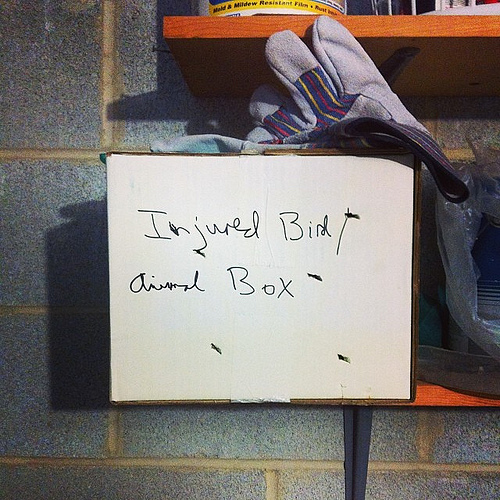 Mold & Mildew Resistant Film • Rust
Injured Bird/
Animal Box